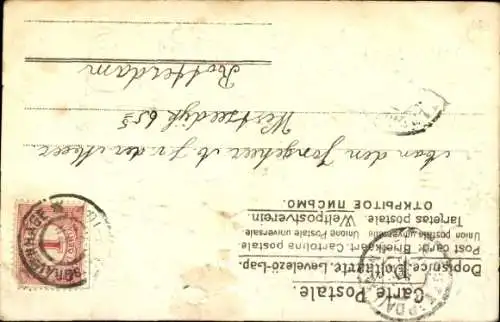 Carte Postale.
Dopisnice. Voltaarte. Levelező-Lap.
Post card. Briefkaart. Cartolina postale.
Union postale universelle Unione postale universale
Targetas postale. Weltpostverein.
ОТКРЫТОЕ ПИСЬМО.
Aan den Jongeheer A. J. v. der Meer
65
Rotterdam
'S GRAVENHAGE
1